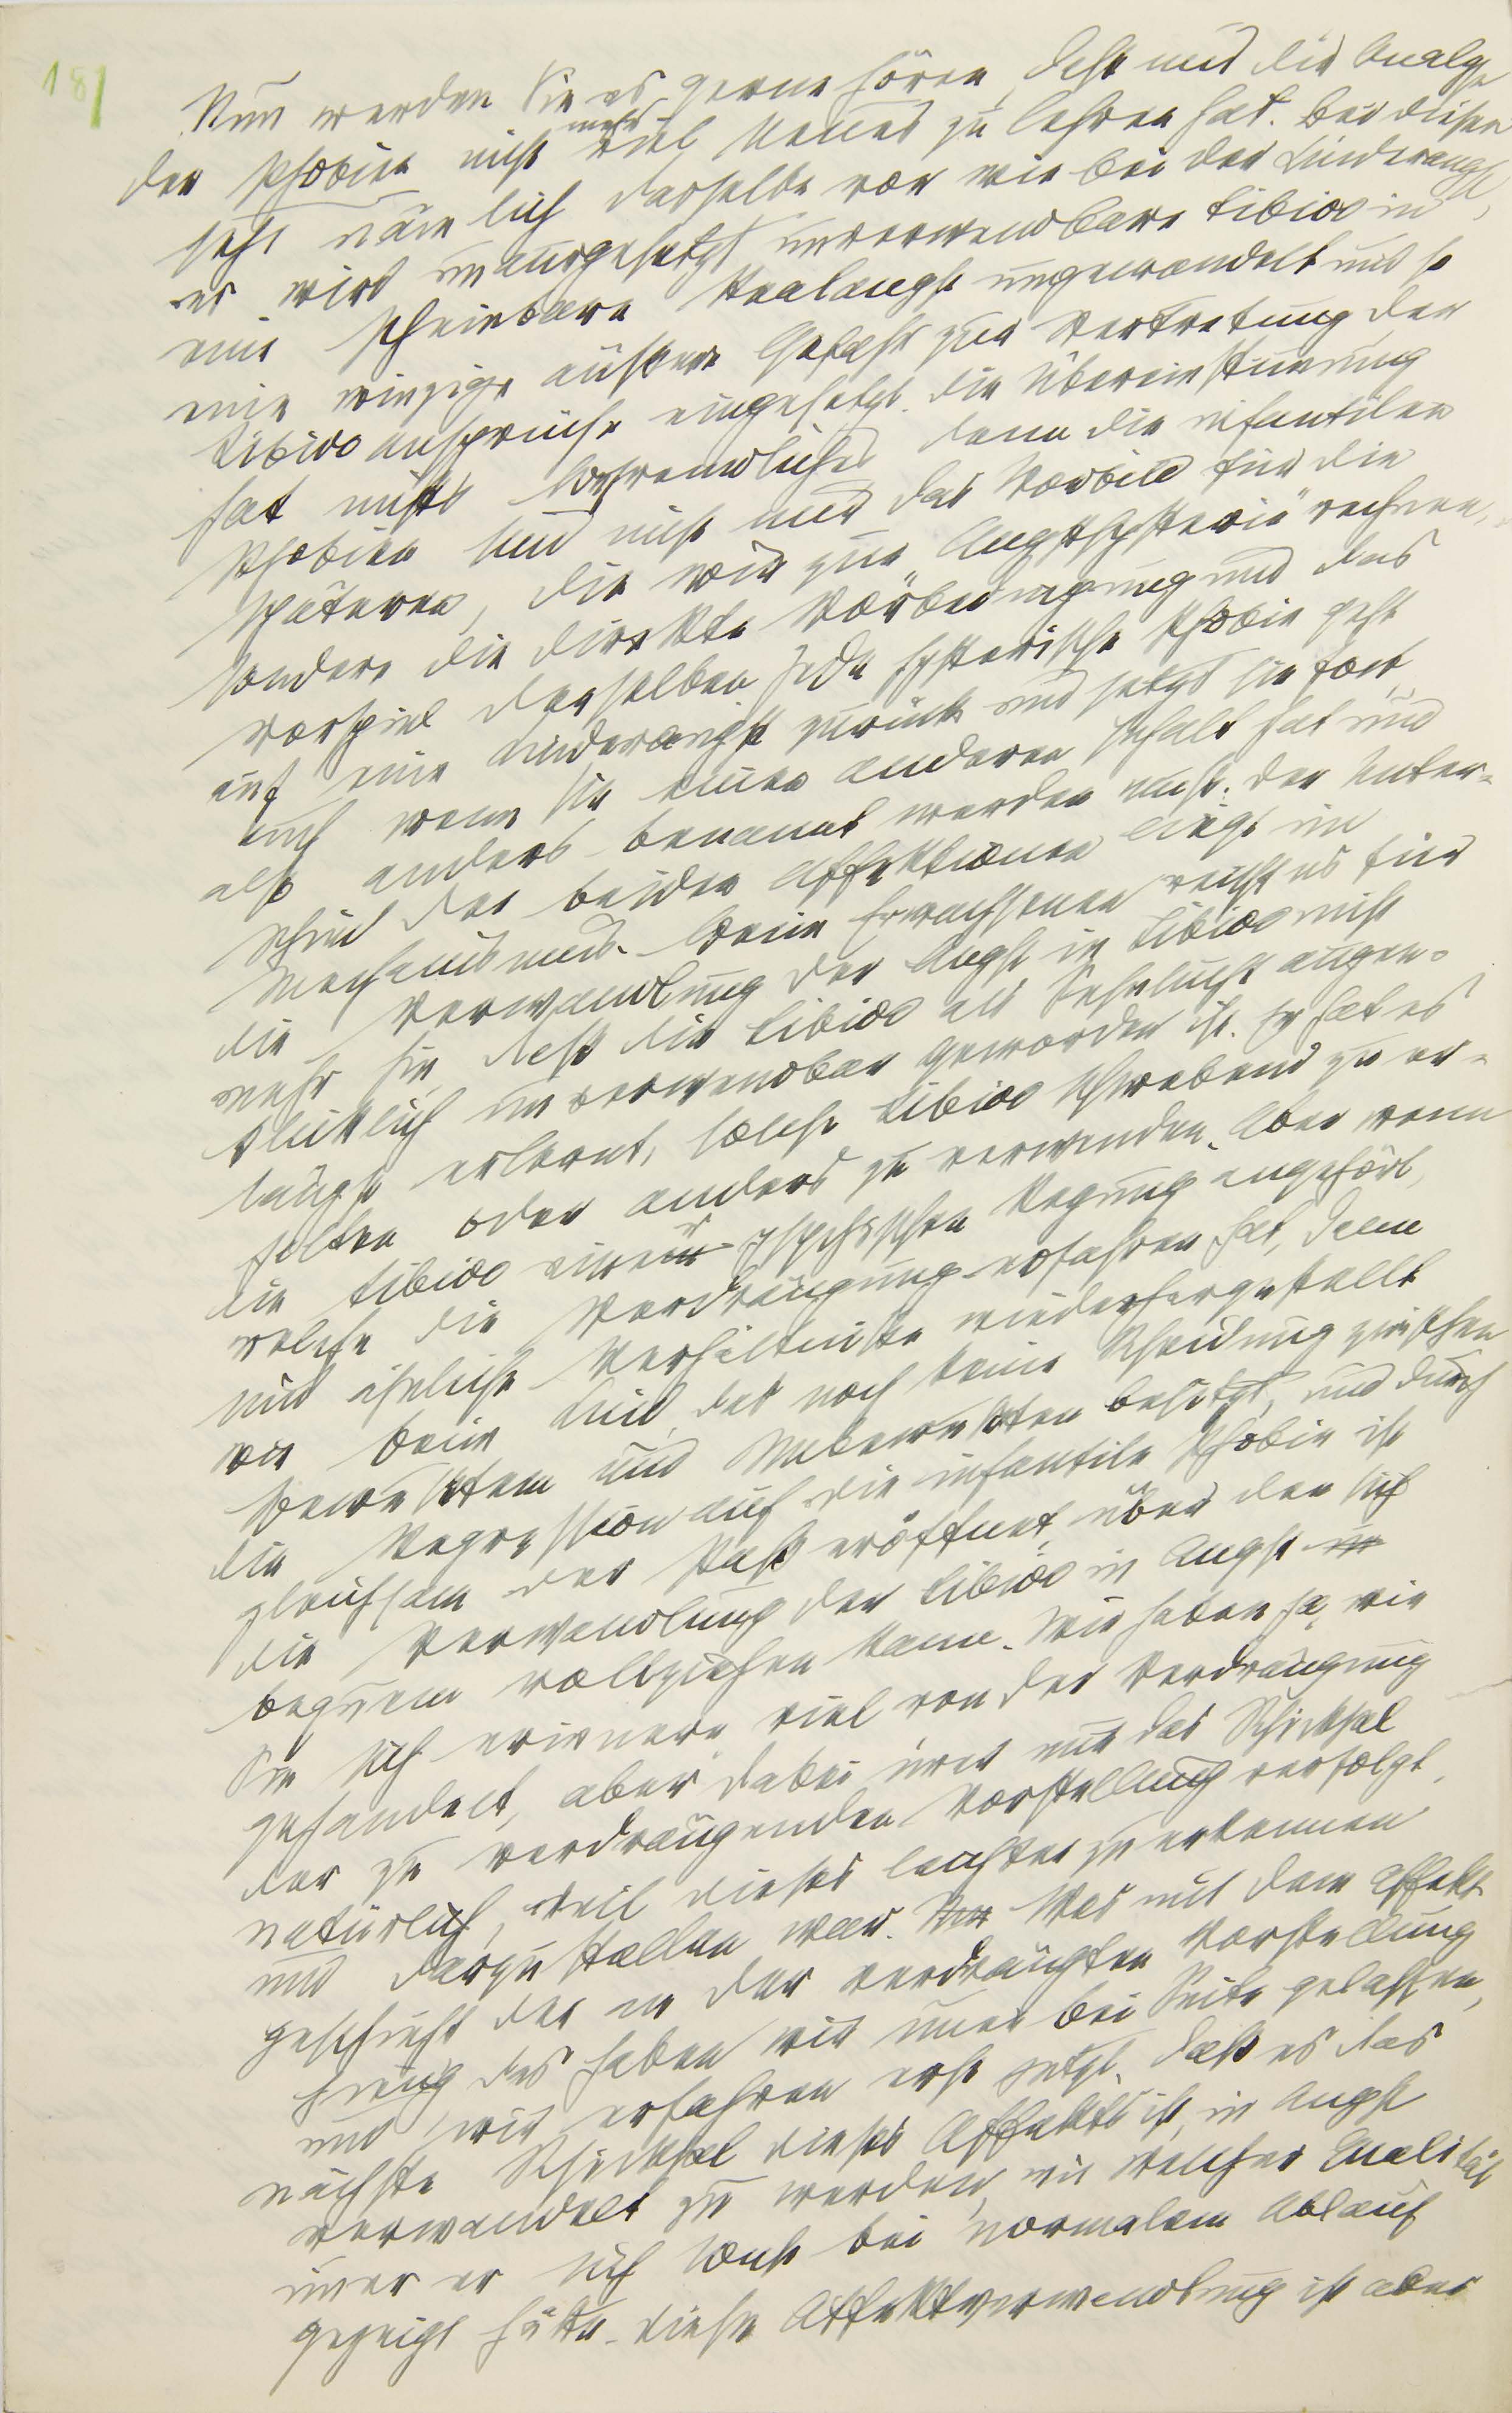 181
Nun werden Sie es gerne hören, daß uns die Analyse
der Phobien nicht mehr viel Neues zu lehren hat. Bei diesen
geht nämlich dasselbe vor wie bei der Kinderangst,
es wird unausgesetzt unverwendbare Libido in
eine scheinbare Realangst umgewandelt und so
eine winzige äußere Gefahr zur Vertretung der
Libidoansprüche eingesetzt. Die Übereinstimmung
hat nichts Befremdliches, denn die infantilen
Phobien sind nicht nur das Vorbild für die
späteren, die wir zur „Angsthysterie“ rechnen,
sondern die direkte Vorbedingung und das
Vorspiel derselben. Jede hysterische Phobie geht
auf eine Kinderangst zurück und setzt sie fort,
auch wenn sie einen anderen Inhalt hat und
also anders benannt werden muß. Der Unter-
schied der beiden Affektionen liegt im
Mechanismus. Beim Erwachsenen reicht es für
die Verwandlung der Angst in Libido nicht
mehr hin, daß die Libido als Sehnsucht augen-
blicklich unverwendbar geworden ist. Er hat es
längst erlernt, solche Libido schwebend zu er-
halten oder anders zu verwenden. Aber wenn
die Libido einer psychischen Regung angehört,
welche die Verdrängung erfahren hat, dann
sind ähnliche Verhältnisse wiederhergestellt
wie beim Kind, das noch keine Scheidung zwischen
Bewußtem und Unbewußten besitzt, und durch
die Regression auf die infantile Phobie ist
gleichsam der Paß eröffnet, über den sich
die Verwandlung der Libido in Angst
bequem vollziehen kann. Wir haben ja, wie
Sie sich erinnern, viel von der Verdrängung
gehandelt, aber dabei immer nur das Schicksal
der zu verdrängenden Vorstellung verfolgt,
natürlich, weil dieses leichter zu erkennen
und darzustellen war. Was mit dem Affekt
geschieht, der an der verdrängten Vorstellung
hieng, das haben wir immer bei Seite gelassen,
und wir erfahren erst jetzt, daß es das
nächste Schicksal dieses Affekts ist, in Angst
verwandelt zu werden, in welcher Qualität
immer er sich sonst bei normalem Ablauf
gezeigt hätte. Diese Affektverwandlung ist aber